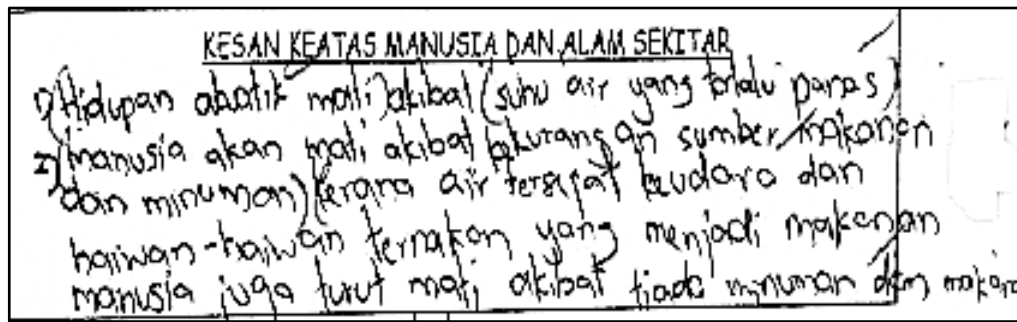 KESAN KEATAS MANUSIA DAN ALAM SEKITAR
1) (Hidupan abatik mati) akibat (suhu air yang terlalu panas)
2) (manusia akan mati akibat kekurangan sumber makanan
dan minuman) (kerana air tersejat keudara dan
haiwan-haiwan ternakan yang menjadi makanan
manusia juga turut mati akibat tiada minuman dan makana